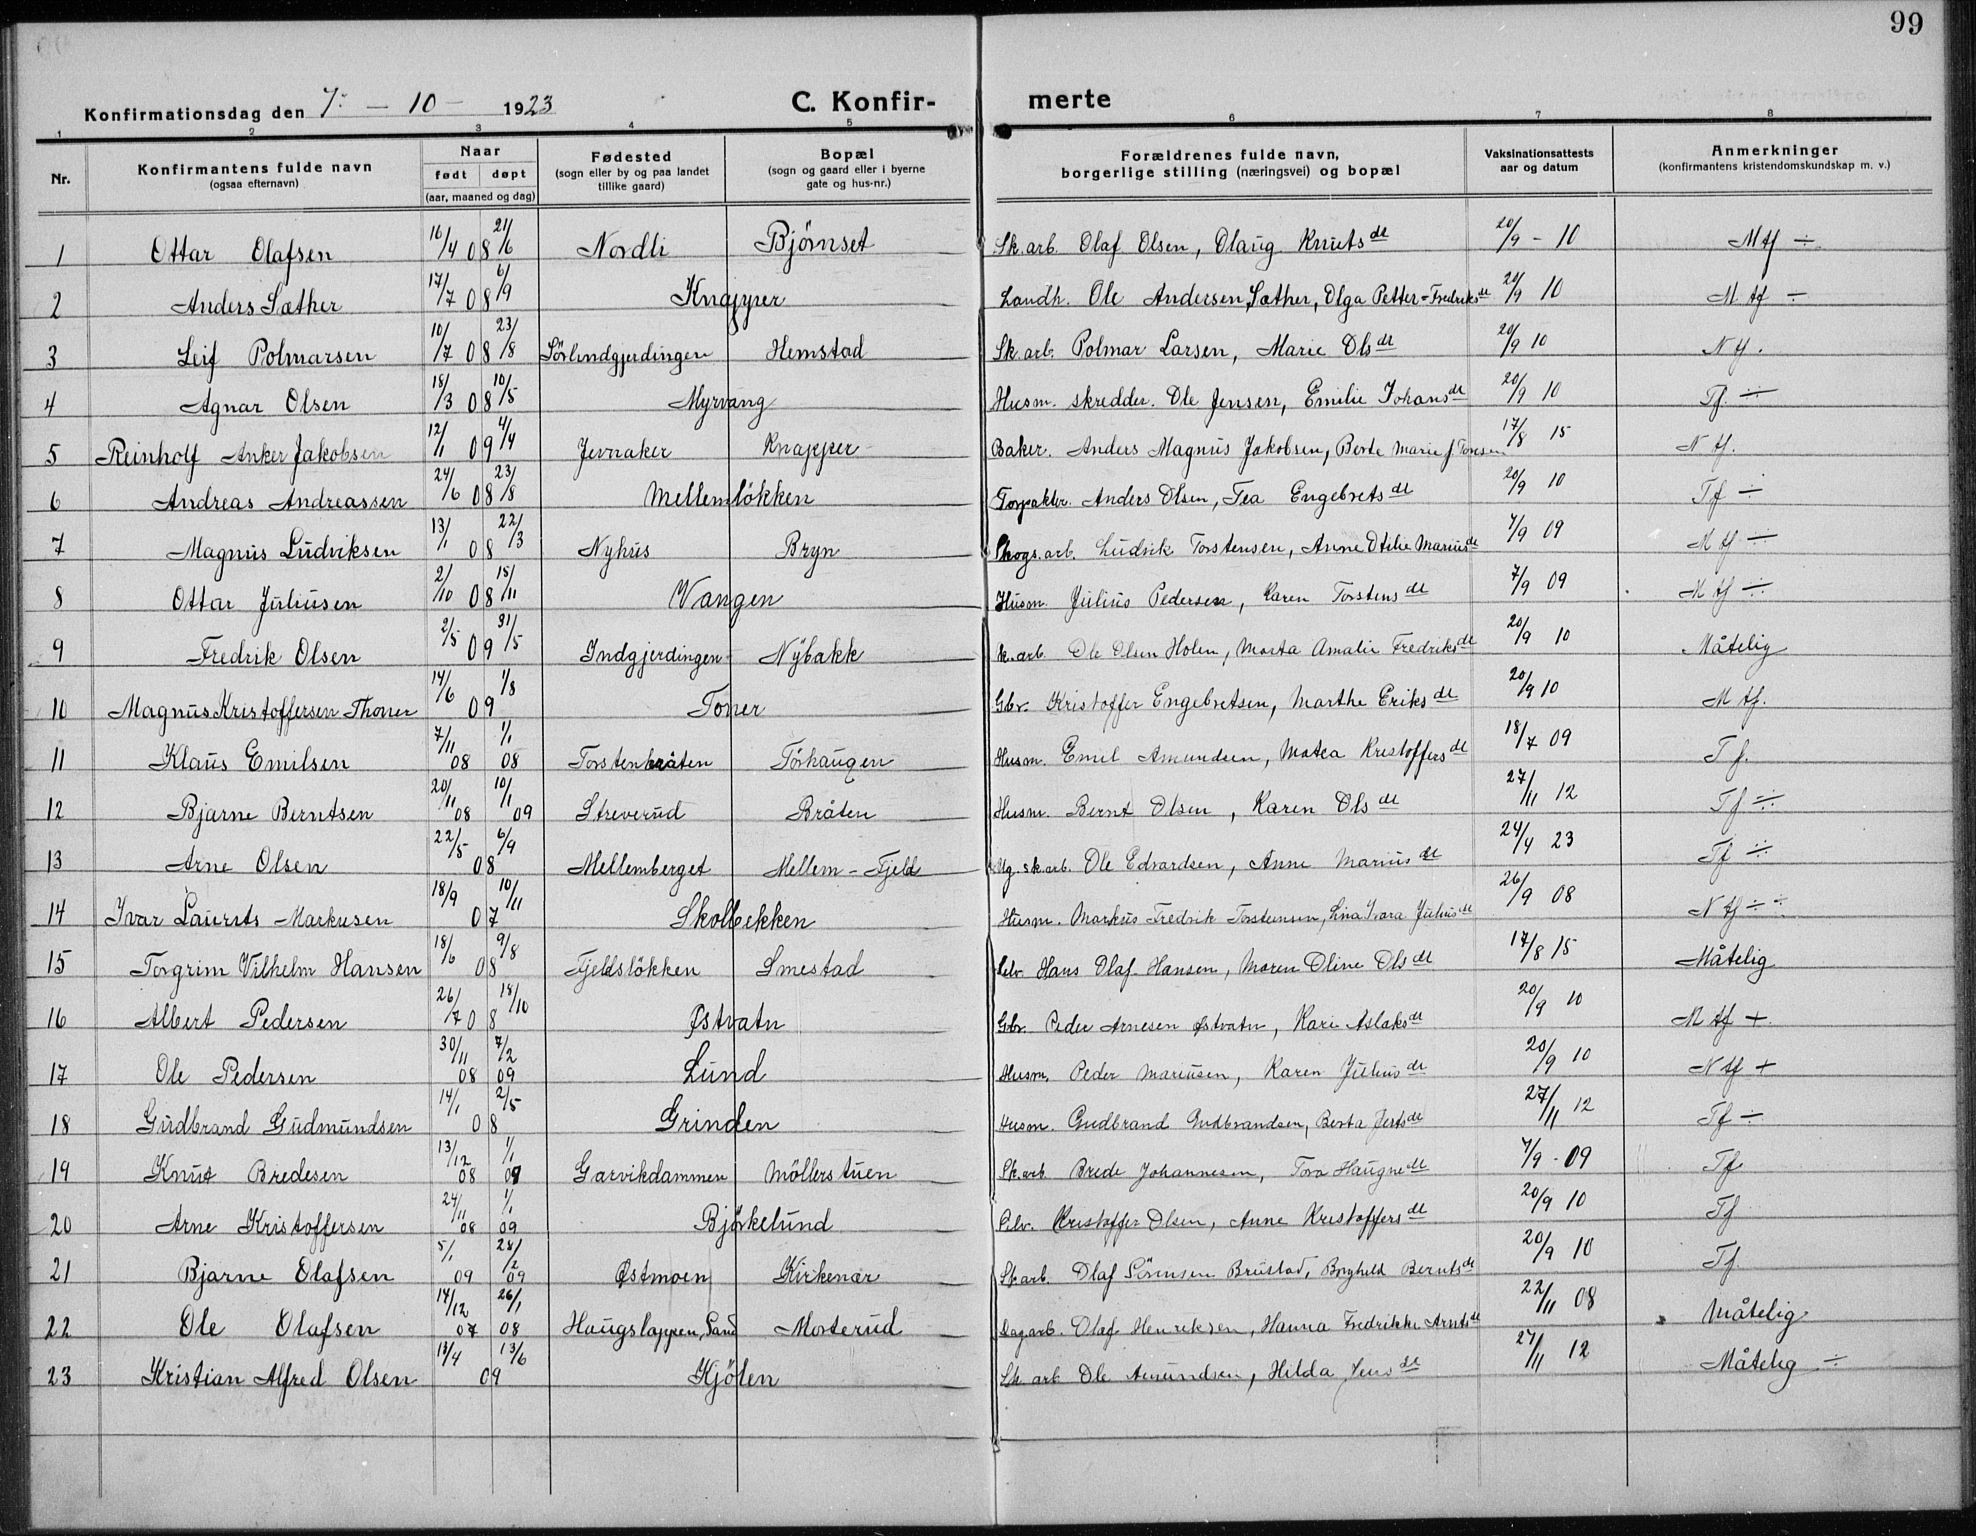 99
Konfirmationsdag den 7: - 10 - 1923 C. Konfir- merte
1 2 3 4 5 6 7 8
Nr. Konfirmantens fulde navn (ogsaa efternavn) Naar født døpt (aar, maaned og dag) Fødested (sogn eller by og paa landet tillike gaard) Bopæl (sogn og gaard eller i byerne gate og hus-nr.) Forældrenes fulde navn, borgerlige stilling (næringsvei) og bopæl Vaksinationsattests aar og datum Anmerkninger (konfirmantens kristendomskundskap m. v.)
1 Ottar Olafsen 16/4 08 21/6 Nordli Bjørnset Sk. arb. Olaf Olsen, Olaug Knutsdt 20/9 - 10 M tf ÷
2 Anders Sæther 17/7 08 6/9 Knapper Landh. Ole Andersen Sæther, Olga Petter=Fredriksdt 20/9 10 M tf ÷
3 Leif Polmarsen 10/7 08 23/8 Sörlindgjerdingen Hemstad Sk. arb. Polmar Larsen, Marie Olsdt 20/9 10 N tf.
4 Agnar Olsen 18/3 08 10/5 Myrvang Husm. skredder. Ole Jensen, Emilie Johansdt 20/9 10 Tf. ÷
5 Reinholf Anker Jakobsen 12/1 09 4/4 Jevnaker Knapper Baker. Anders Magnus Jakobsen, Berte Marie f. Tonsen 17/8 15 N tf.
6 Andreas Andreassen 24/6 08 23/8 Mellemlökken Torpakter. Anders Olsen, Tea Engebretsdt 20/9 10 Tf ÷
7 Magnus Ludviksen 13/1 08 22/3 Nyhus Bryn Skogs. arb. Ludvik Torstensen, Anne Otilie Mariusdt 7/9 09 M tf ÷
8 Ottar Juliusen 2/10 08 15/11 Vangen Husm. Julius Pedersen, Karen Torstensdt 7/9 09 M tf ÷
9 Fredrik Olsen 2/5 09 31/5 Indgjerdingen Nÿbakk Sk. arb. Ole Olsen Holen, Marta Amalie Fredriksdt 20/9 10 Måtelig
10 Magnus Kristoffersen Thoner 14/6 09 1/8 Toner Gbr. Kristoffer Engebretsen, Marthe Eriksdt 20/9 10 M tf.
11 Klaus Emilsen 7/11 08 1/1 08 Torstenbråten Törhaugen Husm. Emil Amundsen, Matea Kristoffersdt 18/7 09 Tf.
12 Bjarne Berntsen 20/11 08 10/1 09 Streverud Bråten Husm. Bernt Olsen, Karen Olsdt 27/11 12 Tf ÷
13 Arne Olsen 22/5 08 6/9 Mellemberget Mellem-Fjeld Ug. sk. arb. Ole Edvardsen, Anne Mariusdt 24/4 23 Tf ÷
14 Ivar Laurits Markusen 18/9 07 10/11 Skolbekken Husm. Markus Fredrik Torstensen, Lina Ivara Juliusdt 26/9 08 N tf ÷
15 Torgrim Vilhelm Hansen 18/6 08 9/8 Fjeldslökken Smestad Selv. Hans Olaf Hansen, Maren Oline Olsdt 17/8 15 Måtelig
16 Albert Pedersen 26/7 08 18/10 Østvatn Gbr. Peder Arnesen Østvatn, Kari Aslaksdt 20/9 10 M tf +
17 Ole Pedersen 30/11 08 7/2 09 Lund Husm. Peder Mariusen, Karen Juliusdt 20/9 10 N tf +
18 Gudbrand Gudmundsen 14/1 08 2/5 Grinden Husm. Gudbrand Gudbrandsen, Berta Jertsdt 27/11 12 Tf ÷
19 Knut Bredesen 13/12 08 1/1 09 Garvikdammen Möllerstuen Sk. arb Brede Johannesen, Tora Haugnedt 7/9 - 09 Tf
20 Arne Kristoffersen 24/11 08 1/1 09 Björkelund Selv. Kristoffer Olsen, Anne Kristoffersdt 20/9 10 Tf
21 Bjarne Olafsen 5/1 09 28/2 09 Østmoen Kirkenær Sk. arb. Olaf Sörensen Brustad, Borghild Berntsdt 20/9 10 Tf.
22 Ole Olafsen 14/12 07 26/1 08 Haugslappen, Sand Morterud Dag. arb. Olaf Henriksen, Hanna Fredrikke Arntsdt 22/11 08 Måtelig
23 Kristian Alfred Olsen 13/4 09 13/6 Kjölen Sk. arb Ole Amundsen, Hilda Jensdt 27/11 12 Måtelig ÷